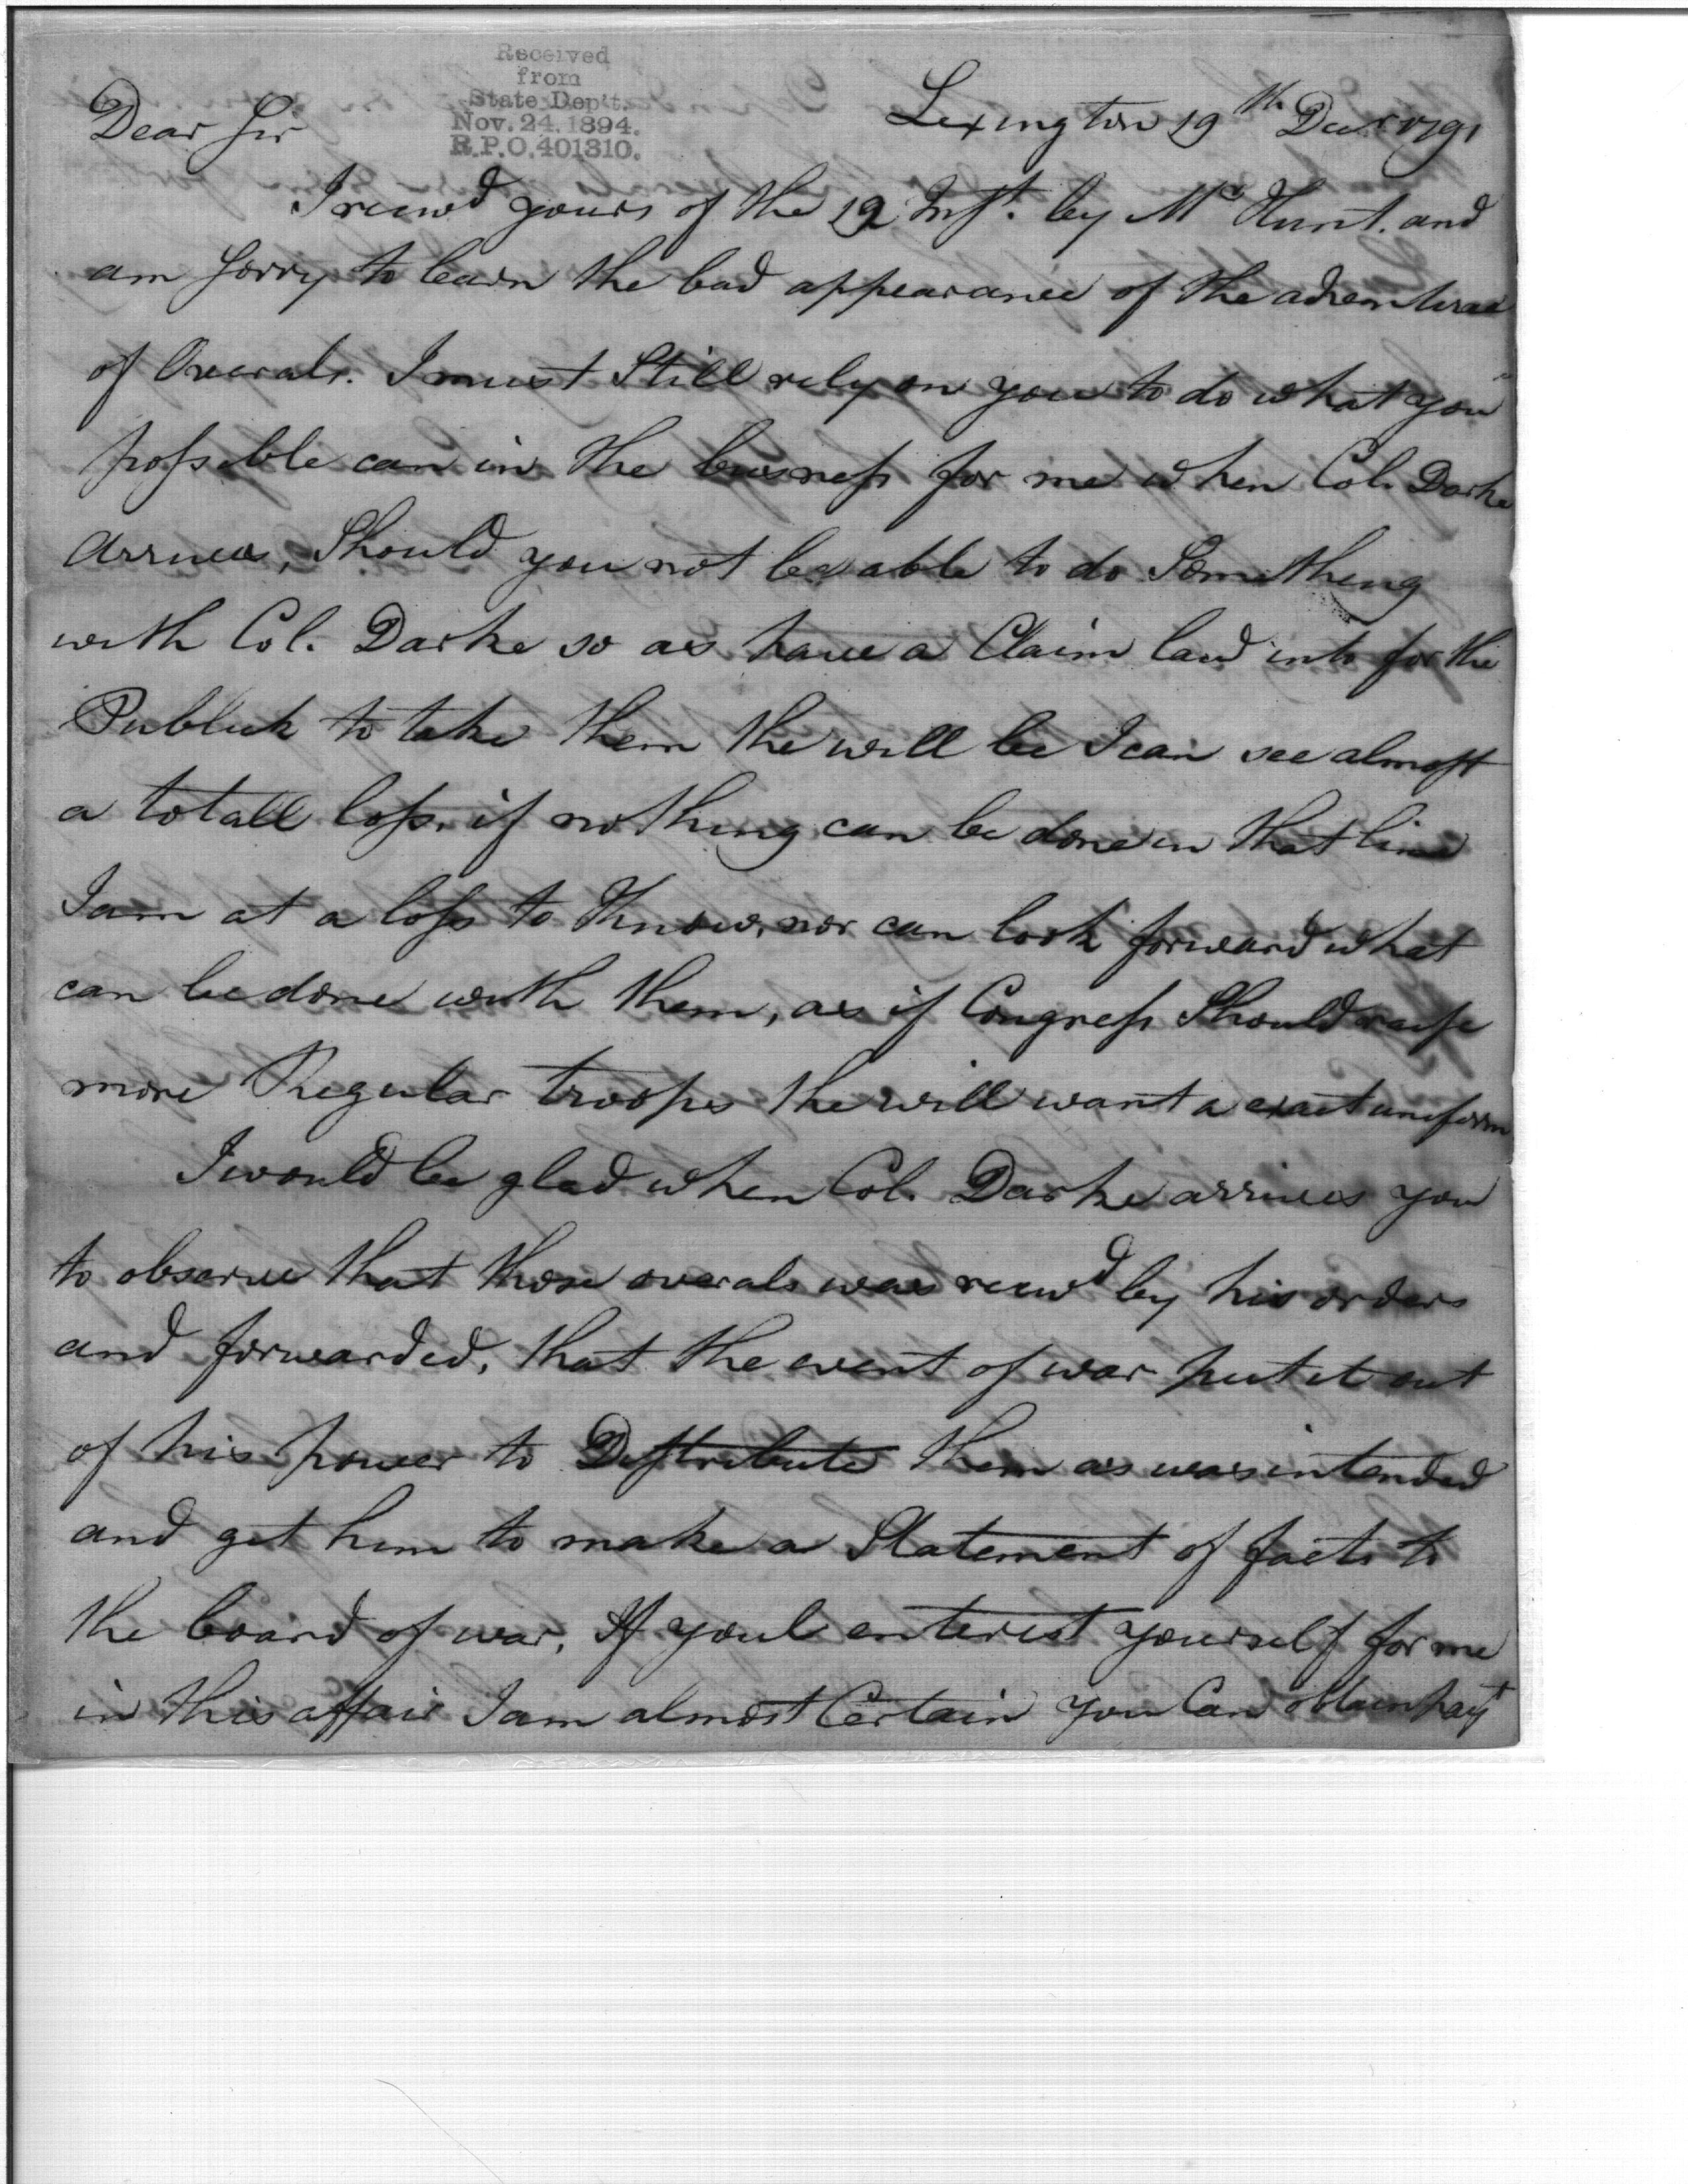 Received
from
State Dep't.
Nov. 24. 1894.
R.P.O. 401310.
Lexington 19th Decr 1791
Dear Sir
I recivd yours of the 12 Inst. by Mr Hunt. and
am sorry to learn the bad appearance of the adventure
of Overals. I must Still rely on you to do what you
possible can in the business for me when Col. Darke
arrives, Should you not be able to do Something
with Col. Darke so as have a Claim laid into for the
Publick to take them the will be I can see almost
a totall loss. if nothing can be done in that line
I am at a loss to Know, nor can look forward what
can be done with them, as if Congress Should raise
more Regular troops the will want a exact uniform
I would be glad when Col. Darke arrives you
to observe that those overals was recivd by his orders
and forwarded, that the event of war put it out
of his power to Distribute them as was intended
and get him to make a Statement of facts to
the board of war, If youl enterest yourself for me
in this affair I am almost Certain you Can obtain payt